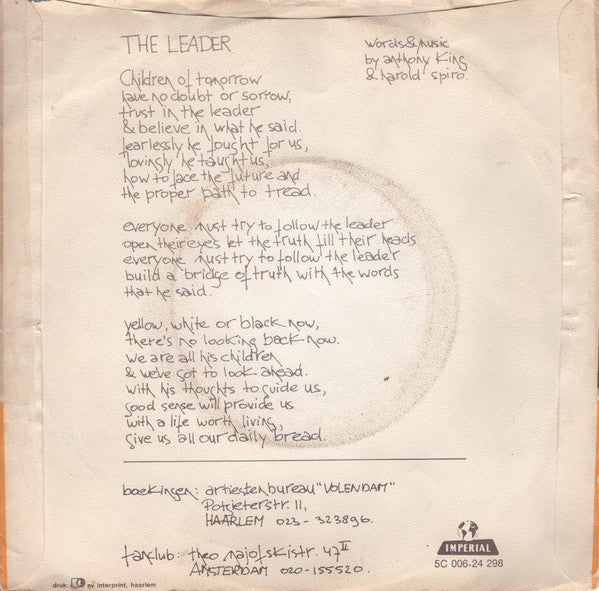 THE LEADER
words & music
by anthony King
& harold spiro.
Children of tomorrow
have no doubt or sorrow,
trust in the leader
& believe in what he said.
fearlessly he fought for us,
lovingly he taught us,
how to face the future and
the proper path to tread.
everyone must try to follow the leader
open their eyes let the truth fill their heads
everyone must try to follow the leader
build a bridge of truth with the words
that he said.
yellow, white or black now,
there's no looking back now.
we are all his children
& we've got to look ahead.
with his thoughts to guide us,
good sense will provide us
with a life worth living,
give us all our daily bread.
boekingen: artiestenbureau "VOLENDAM"
Potgieterstr. 11,
HAARLEM 023-323896.
fanclub: theo majofskistr. 47 II
AMSTERDAM 020-155520.
IMPERIAL
5C 006-24 298
druk: ev interprint, haarlem